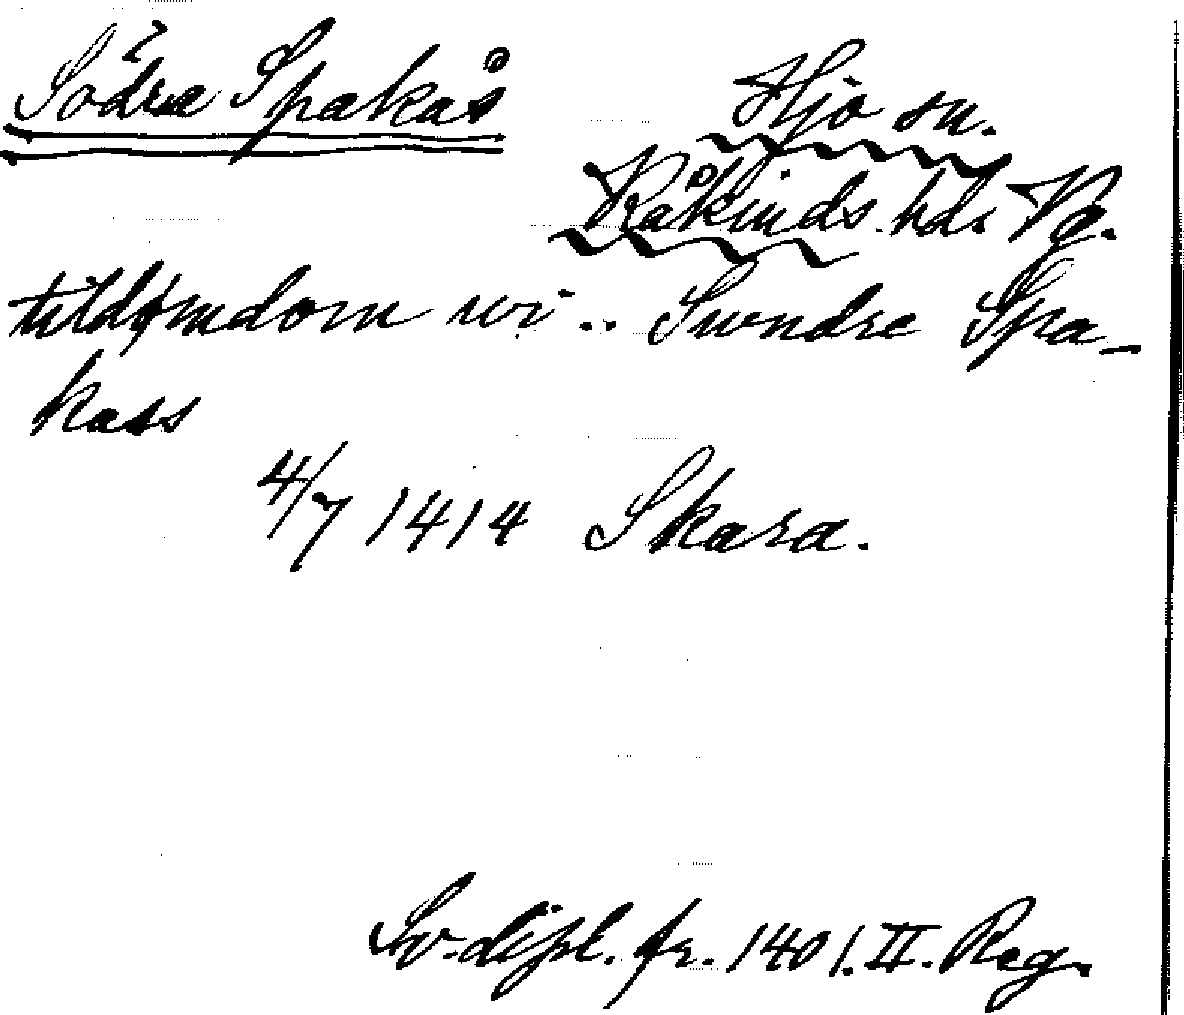 Södra Spakås
Hjo sn.
Kåkinds hd. Vg.
tildømdom wi .. Swndre Spa-
kass
4/7 1414 Skara.
Sv. dipl. fr. 1401. II. Reg.